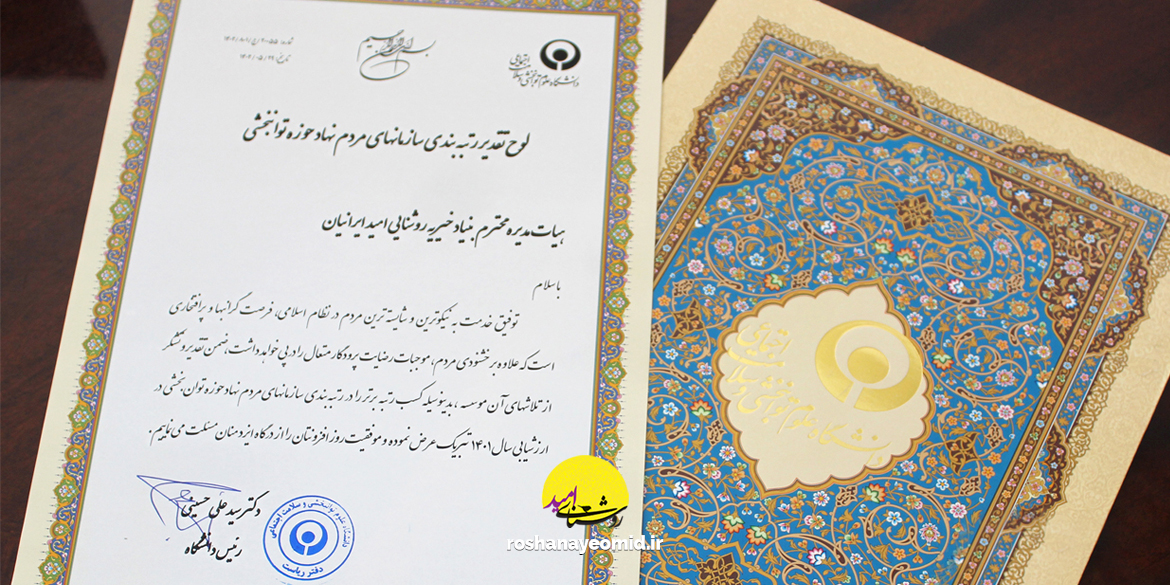 بسم الله الرحمن الرحیم
دانشگاه علوم توانبخشی و سلامت اجتماعی
تاریخ: ۱۴۰۲/۰۵/۲۲
لوح تقدیر رتبه بندی سازمانهای مردم نهاد حوزه توانبخشی
هیات مدیره محترم بنیاد خیریه روشنایی امید ایرانیان
باسلام
توفیق خدمت به نیکوترین و شایسته ترین مردم در نظام اسلامی، فرصت گرانبها و پرافتخاری
است که علاوه بر خشنودی مردم، موجبات رضایت پروردگار متعال را در پی خواهد داشت، ضمن تقدیر و تشکر
از تلاشهای آن موسسه، بدینوسیله کسب رتبه برتر را در رتبه بندی سازمانهای مردم نهاد حوزه توان بخشی در
ارزشیابی سال ۱۴۰۱ تبریک عرض نموده و موفقیت روز افزونتان را از درگاه ایزد منان مسئلت می نماییم.
دکتر سید علی حسینی
رئیس دانشگاه
دانشگاه علوم توانبخشی و سلامت اجتماعی
دفتر ریاست
دانشگاه علوم توانبخشی و سلامت اجتماعی
روشنای امید
roshanayeomid.ir